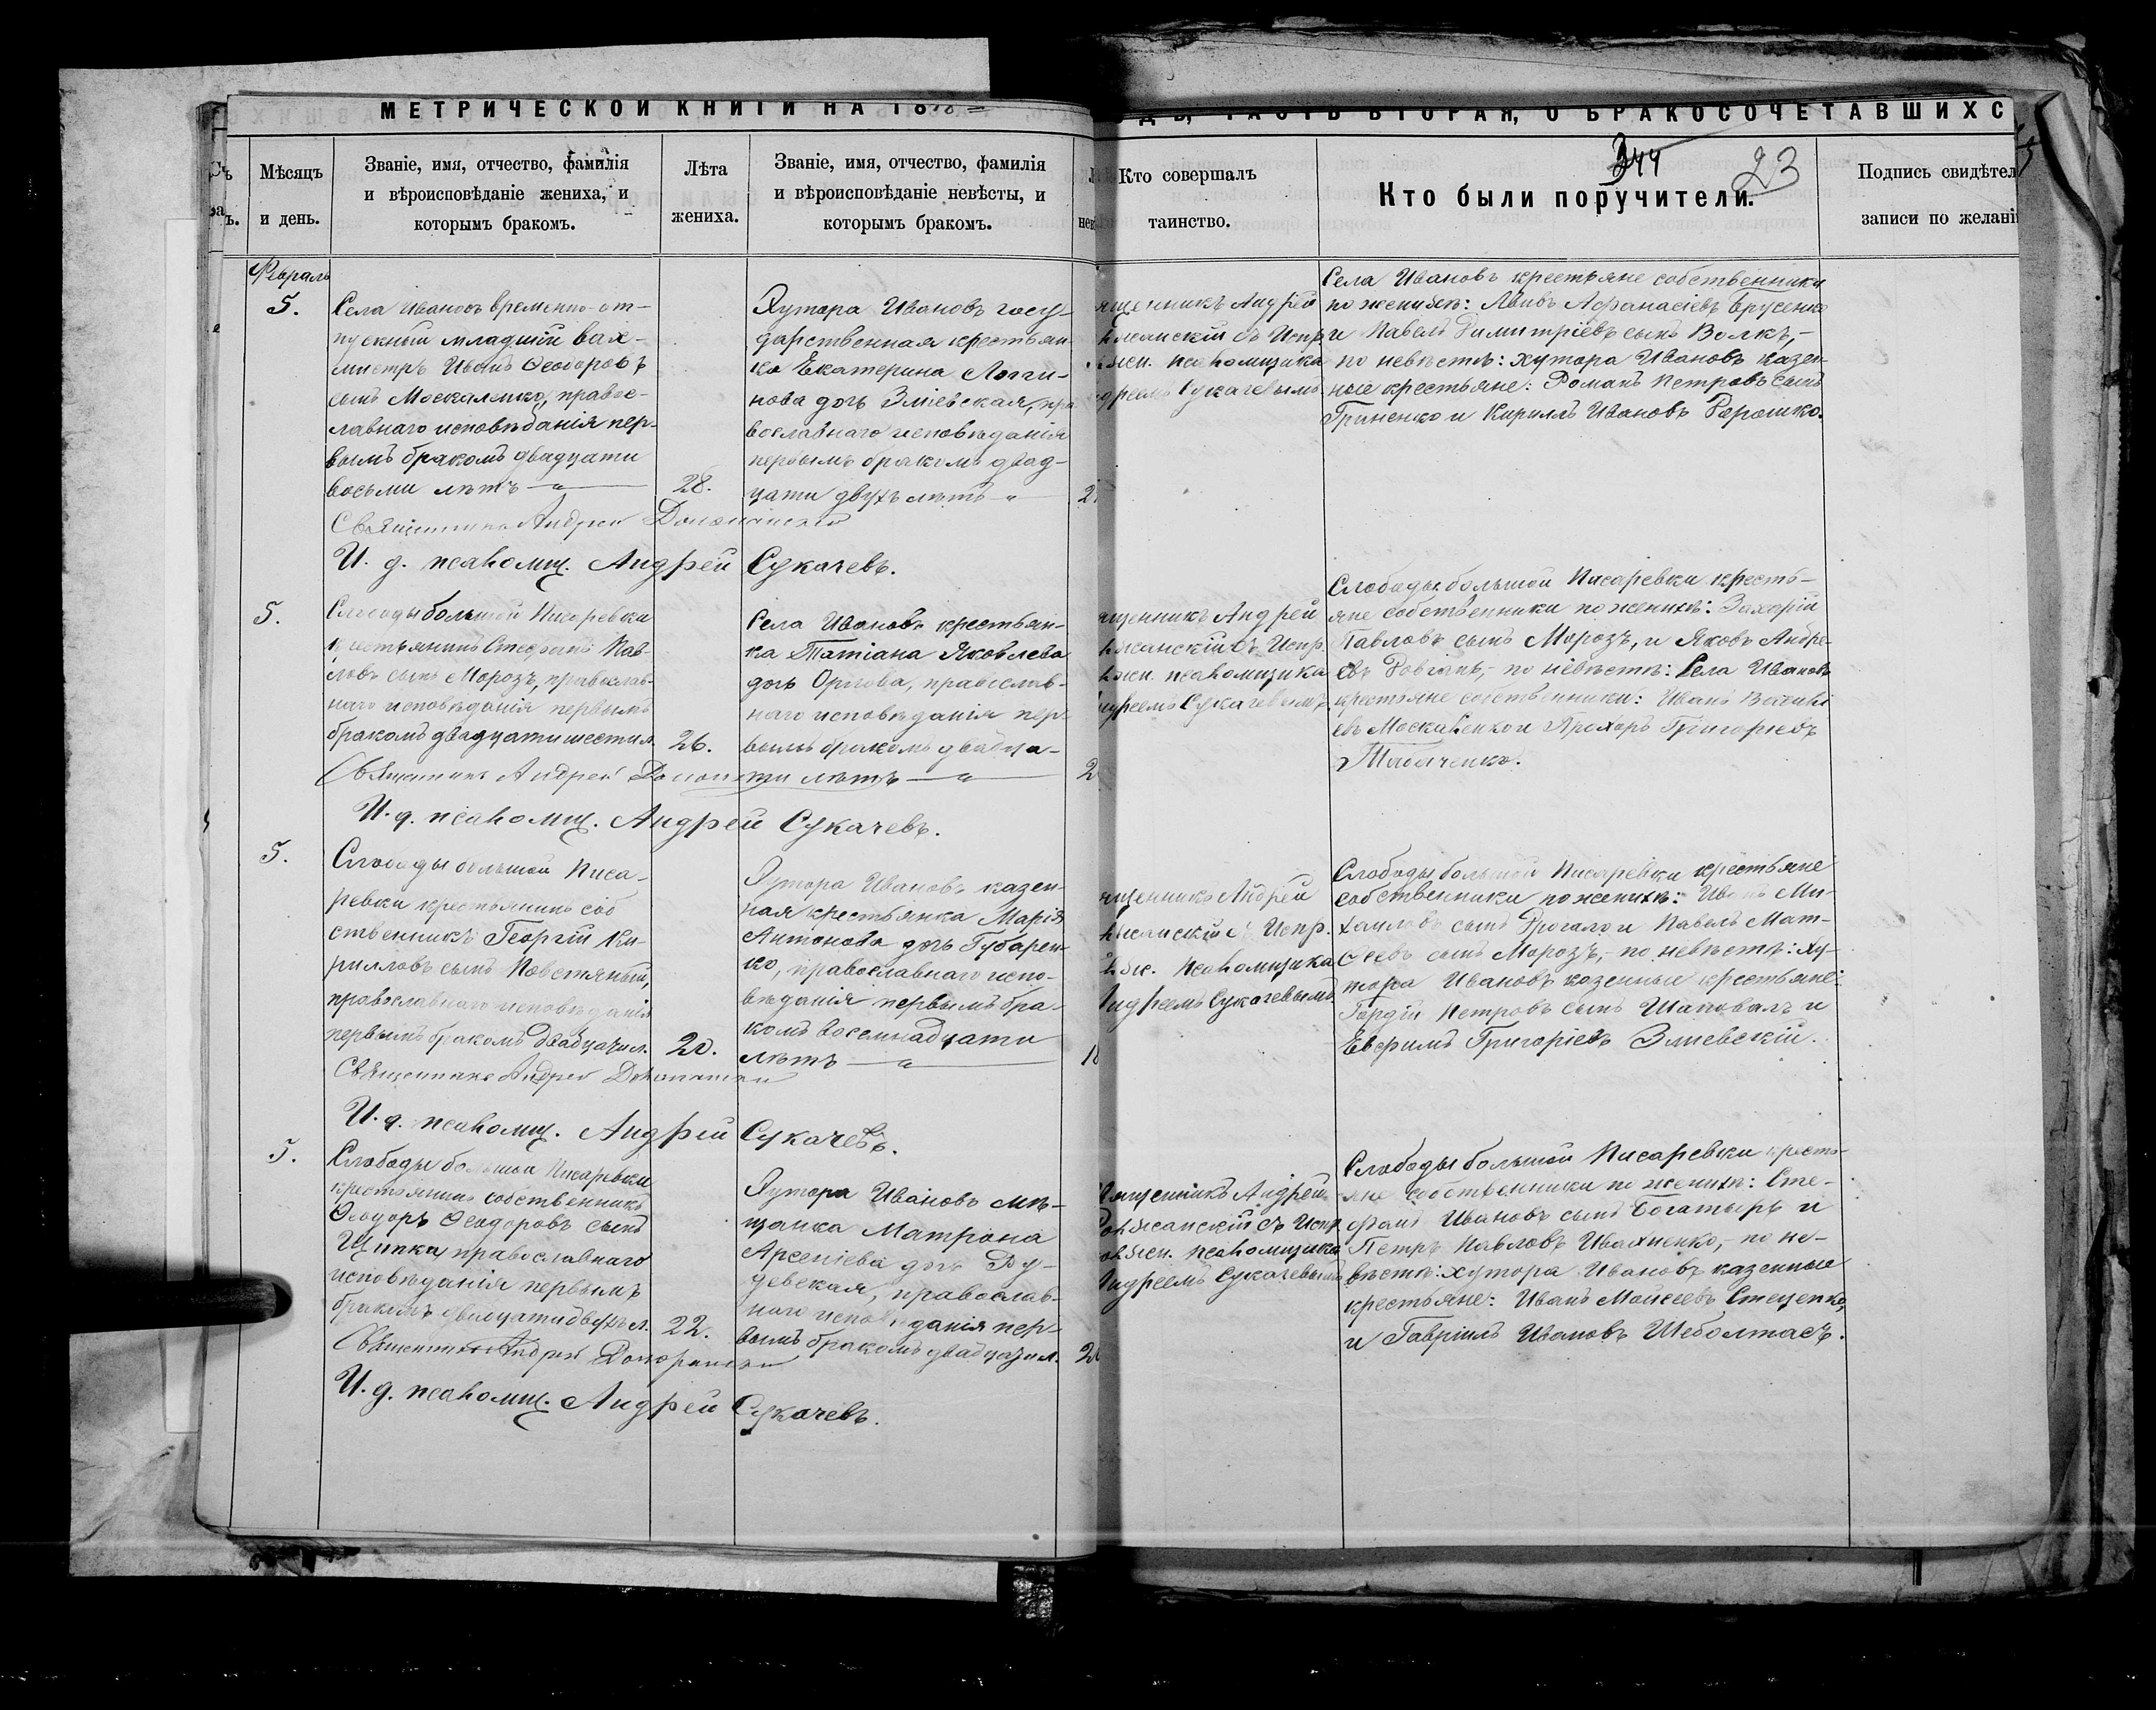 МЕТРИЧЕСКОЙ КНИГИ НА 18
ЧАСТЬ ВТОРАЯ, О БРАКОСОЧЕТАВШИХС
Мѣсяцъ
и день.
Званіе, имя, отчество, фамилія
и вѣроисповѣданіе жениха, и
которымъ бракомъ.
Лѣта
жениха.
Званіе, имя, отчество, фамилія
и вѣроисповѣданіе невѣсты, и
которымъ бракомъ.
Кто совершалъ
таинство.
344
23
Кто были поручители.
Подпись свидѣтел
записи по желані
Февраль
5.
Села Ивановъ временно-от-
пускный младшій вах-
мистръ Иванъ Ѳеодоровъ
сынъ Москаленко, правос-
лавнаго исповѣданія пер-
вымъ бракомъ двадцати
восьми лѣтъ
28.
Хутора Ивановъ госу-
дарственная крестьян-
ка Екатерина Логги-
нова дочь Зміевская, пра
вославнаго исповѣданія
первымъ бракомъ двад-
цати двухъ лѣтъ
Священникъ Андрей
И. д. псаломщ. Андрей Сукачевъ.
ященникъ Андрей
псаломщика
Сукачевымъ
Села Ивановъ крестьяне собственники
по женихѣ: Авивъ Аѳанасіевъ Брусенко
и Павелъ Димитріевъ сынъ Волкъ,-
по невѣстѣ: хутора Ивановъ казен-
ные крестьяне: Романъ Петровъ сынъ
Гриненко и Кириллъ Ивановъ
5.
Слободы большой Писаревки
крестьянинъ Стефанъ Пав-
ловъ сынъ Морозъ, православ-
наго исповѣданія первымъ
бракомъ двадцати шести л.
26.
Села Ивановъ крестьян-
ка Татіана Яковлева
дочь Орлова, православ-
наго исповѣданія пер-
вымъ бракомъ двадца-
ти лѣтъ
Священникъ Андрей
И. д. псаломщ. Андрей Сукачевъ.
ященникъ Андрей
псаломщика
Андреемъ Сукачевымъ
Слободы большой Писаревки кресть-
яне собственники по женихѣ: Захарій
Павловъ сынъ Морозъ, и Яковъ Андре-
евъ по невѣстѣ: Села Ивановъ
крестьяне собственники: Иванъ Василі
евъ Москаленко и Прохоръ Григорьевъ
Ткаченко.
5.
Слободы большой Писа-
ревки крестьянинъ соб
ственникъ Георгій Ки-
рилловъ сынъ Повстяный,
православнаго исповѣданія
первымъ бракомъ двадцати л.
20.
Хутора Ивановъ казен-
ная крестьянка Марія
Антонова дочь Губарен-
ко, православнаго испо-
вѣданія первымъ бра-
комъ восемнадцати
лѣтъ
18
Священникъ Андрей
И. д. псаломщ. Андрей Сукачевъ.
ященникъ Андрей
псаломщика
Андреемъ Сукачевымъ
Слободы большой Писаревки крестьяне
собственники по женихѣ: Иванъ Ми-
хаиловъ сынъ и Павелъ Мат-
ѳеевъ сынъ Морозъ,- по невѣстѣ: ху-
тора Ивановъ казенные крестьяне:
Гордій Петровъ сынъ Шаповалъ и
Евфимъ Григоріевъ Зміевскій.
5.
Слободы большой Писаревки
крестьянинъ собственникъ
Ѳеодоръ Ѳеодоровъ сынъ
Щипка, православнаго
исповѣданія первымъ
бракомъ двадцати двухъ л.
22.
Хутора Ивановъ мѣ-
щанка Матрона
Арсеніева дочь Ду-
девская, православ-
наго исповѣданія пер-
вымъ бракомъ двадцати л.
Священникъ Андрей
И. д. псаломщ. Андрей Сукачевъ.
Священникъ Андрей
псаломщика
Андреемъ Сукачевымъ
Слободы большой Писаревки кресть-
яне собственники по женихѣ: Сте-
фанъ Ивановъ сынъ Богатырь и
Петръ Павловъ Ивахненко,- по не-
вѣстѣ: хутора Ивановъ казенные
крестьяне: Иванъ Моисеевъ Стеценко,
и Гавріилъ Ивановъ Шеболтасъ.